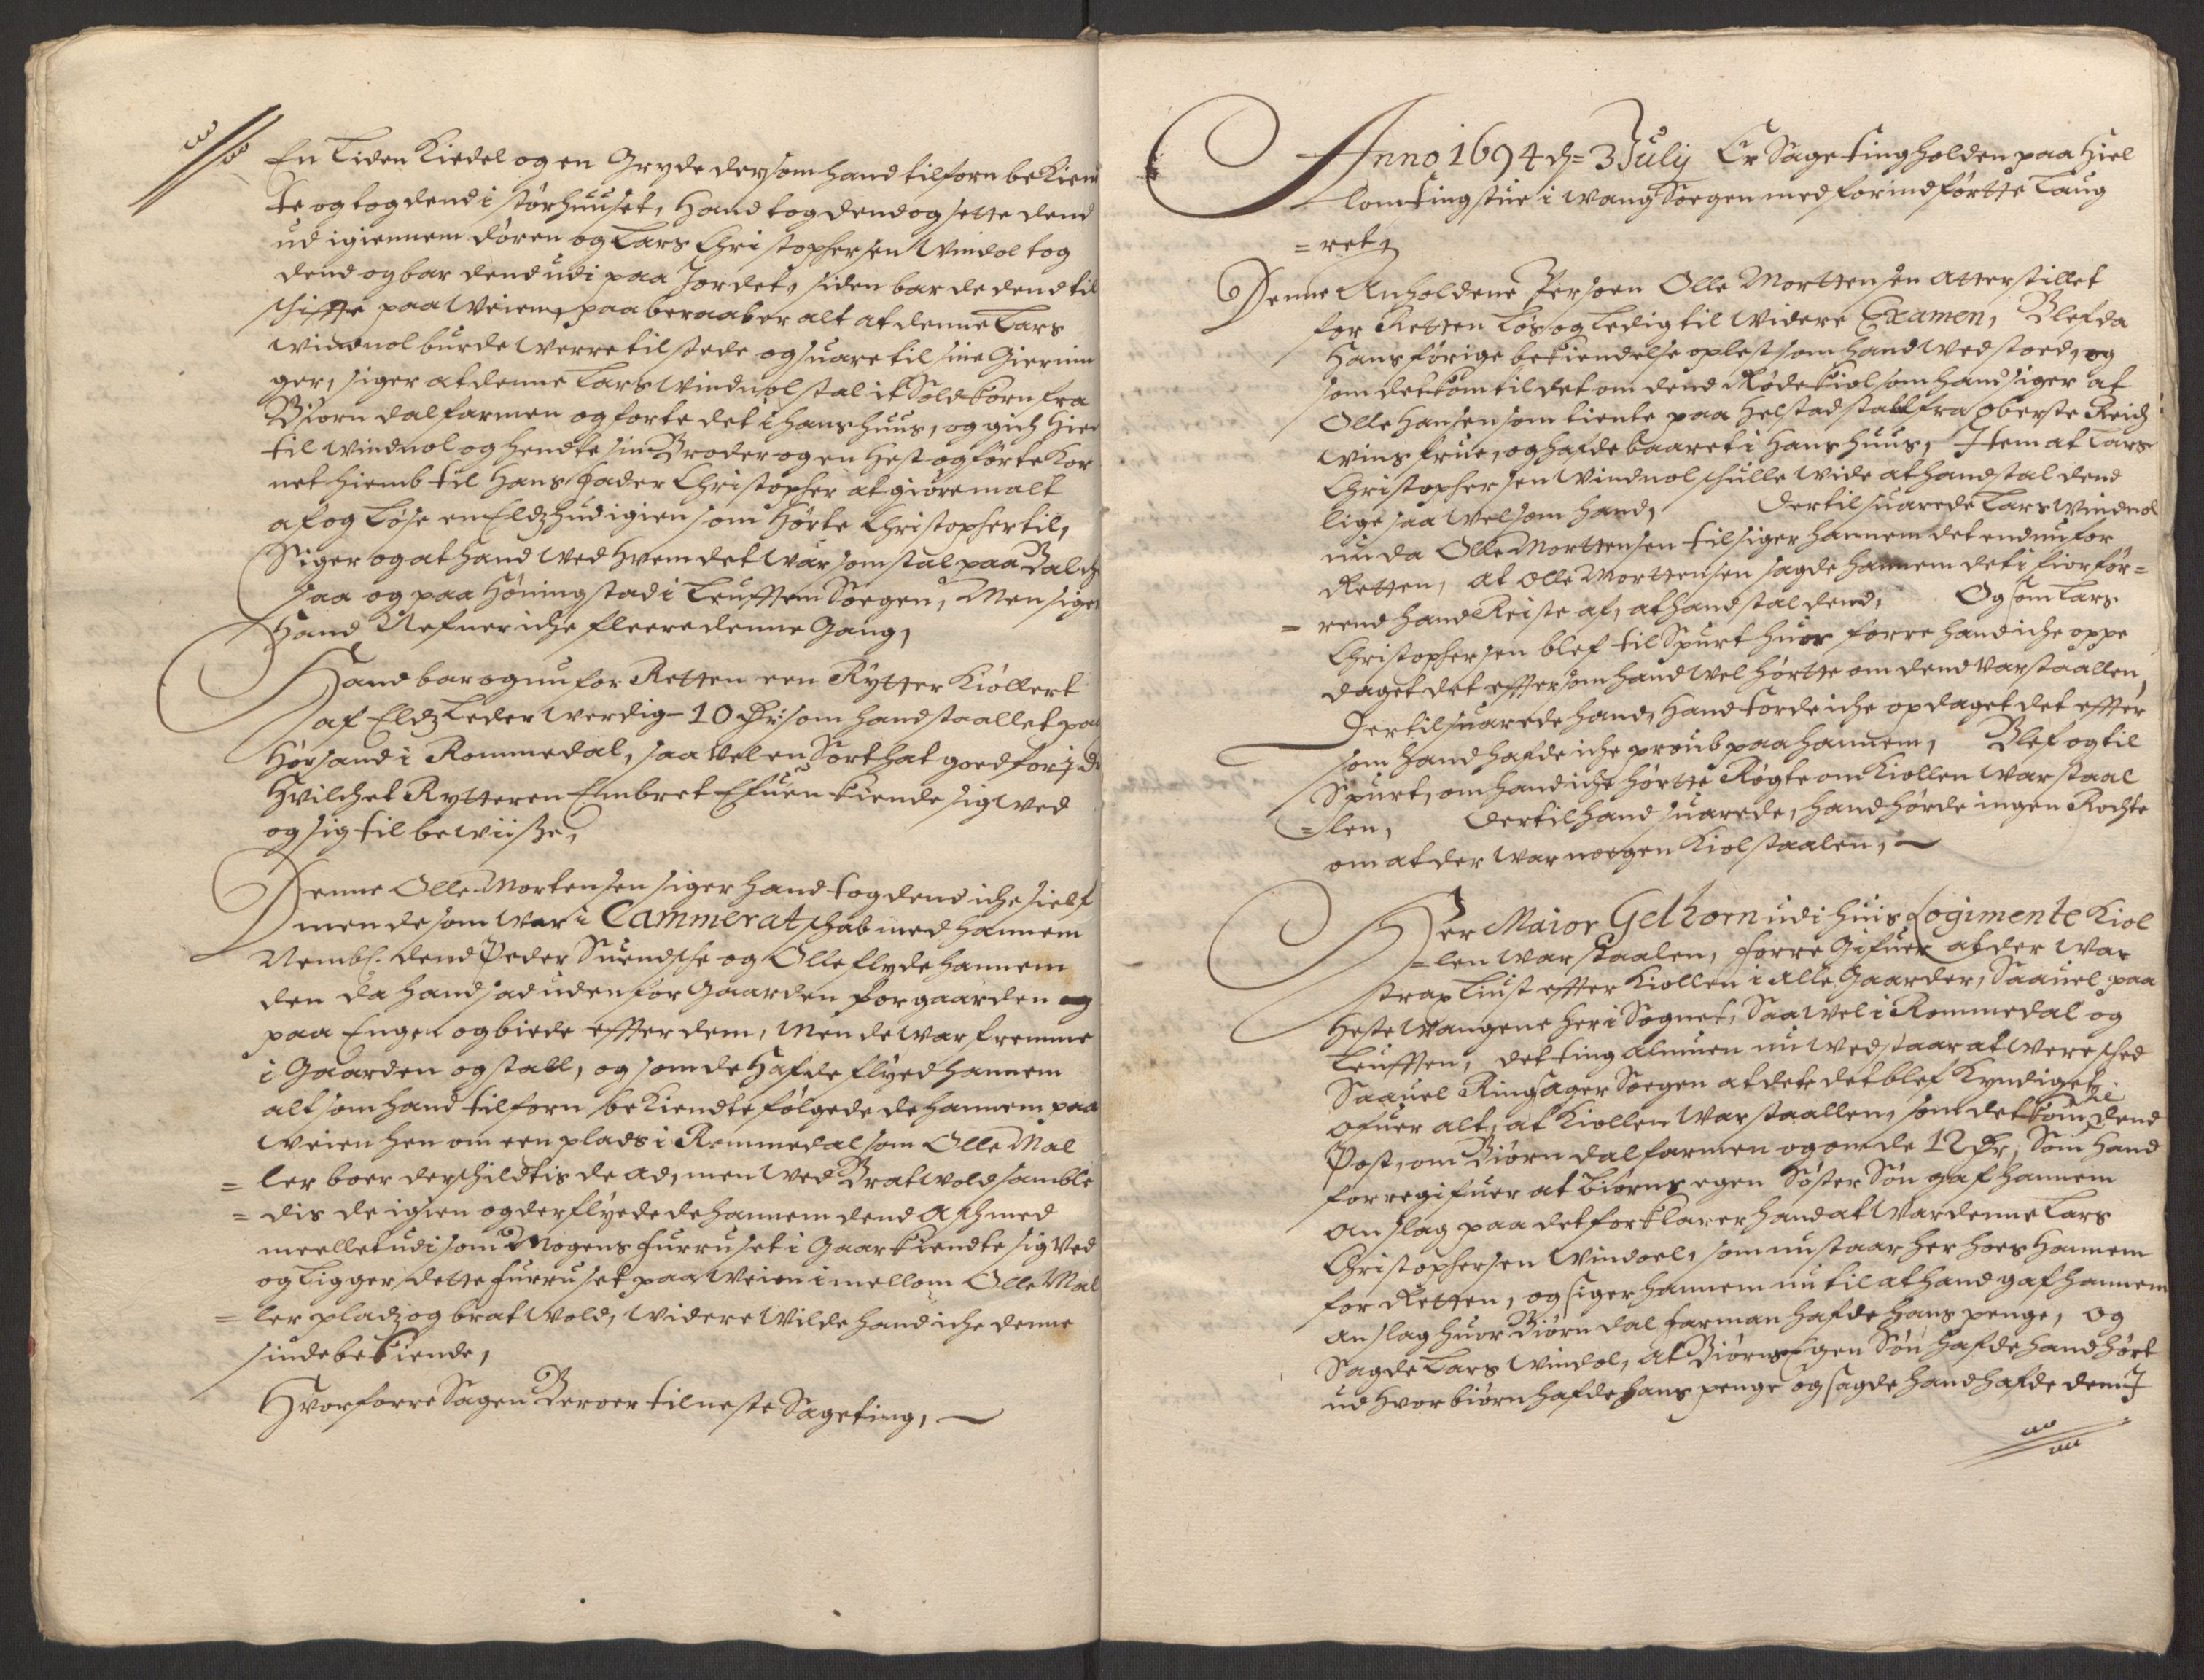 En Liden Kiedel og en Gryde der som hand tilforn bekien
te og tog dend i Størhuuset, Hand tog dend og sette dend
ud igiennem dören og Lars Christophersen Windol tog
dend og bar dend udi paa Jordet, siden bar de dend til
schiffte paa Weien, paaberaaber alt at denne Lars
Windnol burde Werre tilstede og suare til sine Gierinn
ger, siger at denne Lars Windnol stal it Sold Korn fra
Biørn dalfarmen og førte det i hans huus, og gich hier
til Windnol og hendte sin Broder og en Hest og førte Kor
net hiemb til hans Fader Christopher at giøre malt
af og Løse en Eldzhud igien som hørte Christopher til,
Siger og at hand Wed hvem det War som stal paa Balch
saa og paa Høningstad i Leufften Sogen, Men siger
Hand Nefner iche fleere denne Gang,
Hand bar og nu for Retten een Rytter Kiollert
af Eldz Leder Werdig - 10 Dr: som hand staallet paa
Horsand i Rommedal, saa Vel en Sort hat goed for j d
Hvilchet Rytteren Embret Efuen kiende sig Wed
og sig til bewiisze,
Denne Olle Mortensen siger hand tog dend iche sielf
men de som War i Cammeratschab med hannem
Nembl. dend Peder Suendsche og Olle flyde hannem
den da hand sad uden for Gaarden for gaarden
paa Engen og biede effter dem, Men de War fremme
i Gaarden og stall, og som de hafde flyed hannem
alt som hand tilforn bekiendte følgede de hannem paa
Weien hen om een plads i Rommedal som Olle Mal
= ler boer der schildtis de ad, men Wed Bratwold samble
= dis de igien og der flyede de hannem dend Asch med
meellet udi som Mogens Furruset i Gaar kiendte sig Ved
og Ligger dette Furruset paa Weien imellom Olle Mal
= ler pladz og brat Wold, Widere Wilde hand iche denne
sinde bekiende,
Hvorforre Sagen Beroer til neste Sageting,
Anno 1694 d= 3 Julij Er Sage ting holden paa Hiel
lom tingstue i Wang Soegen med forindførtte Laug
= ret,
Denne Anholdene Persoen Olle Morttensen Atter stillet
for Retten Løs og Ledig til Widere Examen, Blef da
Hans forige bekiendelse oplest som hand Wedstoed, og
som det kom til det om dend Røde Kiol som hand siger at
Olle Hansen som tiente paa Helstad stall fra Oberste Reich
wins frue, og hafde baaret i Hans huus, Item at Lars
Christophersen Windnol schulle Wide at hand stal dend
lige saa Wel som hand, Dertil suarede Lars Windnol
nu da Olle Morttensen tilsiger hannem det endnu for
Retten, at Olle Morttensen sagde hannem det i fior för=
= rend hand Reiste af, at hand stal dend, Og som Lars
Christophersen blef tilspurt huor forre hand iche oppe
daget det effter som hand Wel hørtte om dend Var staallen,
Dertil suarede hand, Hand torde iche opdaget det effter
som hand hafde iche proub paa hannem, Blef og til
Spurt, om hand iche hørtte Røgte om Kiollen War staal
= len, Dertil hand suarede, hand hörde ingen Rochte
om at der War noegen Kiol staalen,
Her Maior Gelhorn udi huis Logimente Kiol
= len War staalen, forre Gifuer at der War
strax Liust effter Kiollen i alle Gaarder, Saauel paa
Heste Wangene her i Sognet, Saa Wel i Rommedal og
Leufften, det ting Almuen nu Wedstaar at Were sched
Saauel Ringsager Soegen at dete det blef Kyndiget
ofuer alt, at Kiollen War staallen, som det kom til dend
Post, om Biørn dalfarmen og om de 12 Dr, Som Hand
forregifuer at Biørns egen Söster Sön gaf hannem
Anslag paa det forklarer hand at War denne Lars
Christophersen Windoel, som nu staar her hoes Hannem
for Retten, og siger hannem nu til at hand gaf hannem
Anslag huor Biørn dal farman hafde hans penge, og
Sagde Lars Windol, At Biørns Egen Sön hafde hand hört
ud hvor biørn hafde hans penge og sagde hand hafde dem I